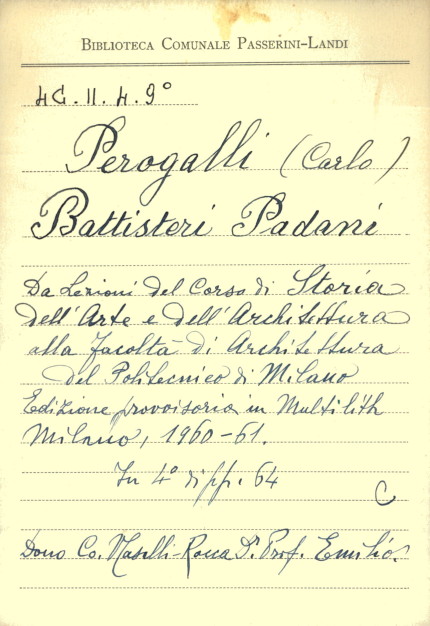 BIBLIOTECA COMUNALE PASSERINI-LANDI
4G.II.4.9°
Perogalli (Carlo)
Battisteri Padani
Da Lezioni del Corso di Storia
dell'Arte e dell'Architettura
alla facoltà di Architettura
del Politecnico di Milano
Edizione provvisoria in Multilith
Milano, 1960-61.
In 4° di pp. 64
C
Dono Co. Maselli-Rocca Dr. Prof. Emilio.